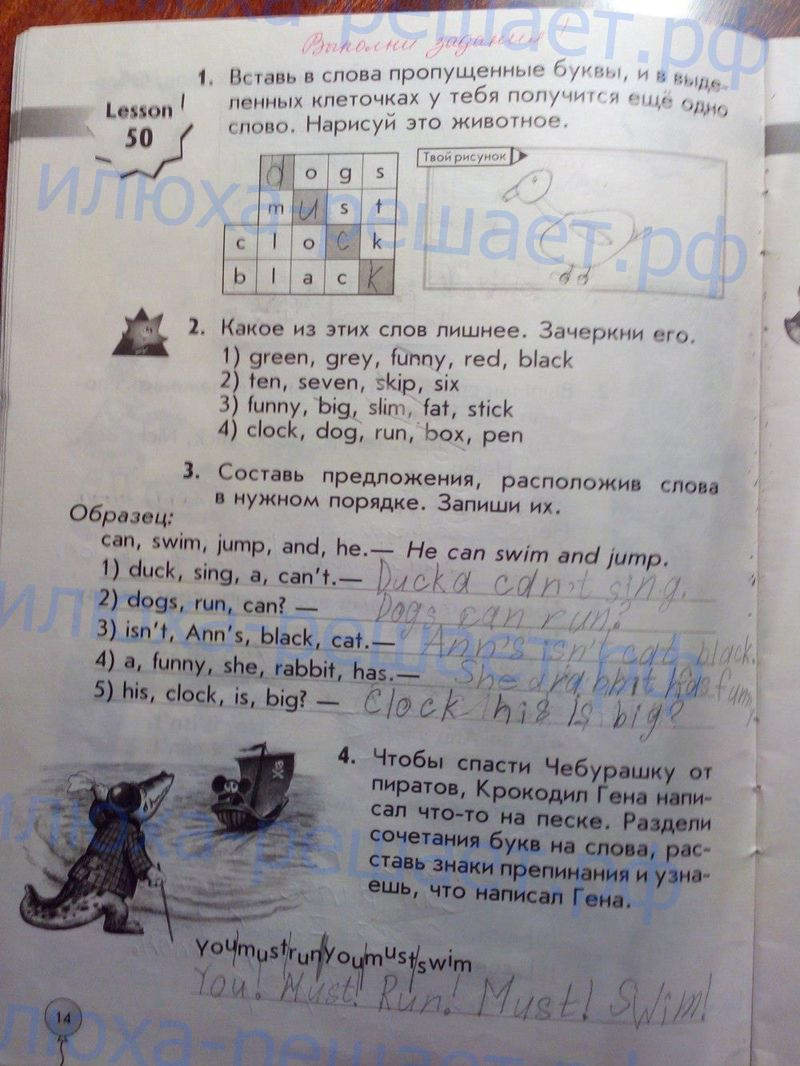 Выполни задания
илюха-решает.рф
1. Вставь в слова пропущенные буквы, и в выде-
ленных клеточках у тебя получится ещё одно
слово. Нарисуй это животное.
Lesson
50
Твой рисунок
d o g s
m u s t
c l o c k
b l a c k
илюха-решает.рф
2. Какое из этих слов лишнее. Зачеркни его.
1) green, grey, funny, red, black
2) ten, seven, skip, six
3) funny, big, slim, fat, stick
4) clock, dog, run, box, pen
3. Составь предложения, расположив слова
в нужном порядке. Запиши их.
Образец:
can, swim, jump, and, he.— He can swim and jump.
1) duck, sing, a, can't.— Duck a can't sing.
2) dogs, run, can? — Dogs can run?
3) isn't, Ann's, black, cat.— Ann's isn't cat black.
4) a, funny, she, rabbit, has.— She a rabbit has funny
5) his, clock, is, big? — Clock his is big?
илюха-решает.рф
4. Чтобы спасти Чебурашку от
пиратов, Крокодил Гена напи-
сал что-то на песке. Раздели
сочетания букв на слова, рас-
ставь знаки препинания и узна-
ешь, что написал Гена.
Ха
илюха-решает.рф
youmustrunyoumustswim
You! Must! Run! Must! Swim!
14
илюха-решает.рф